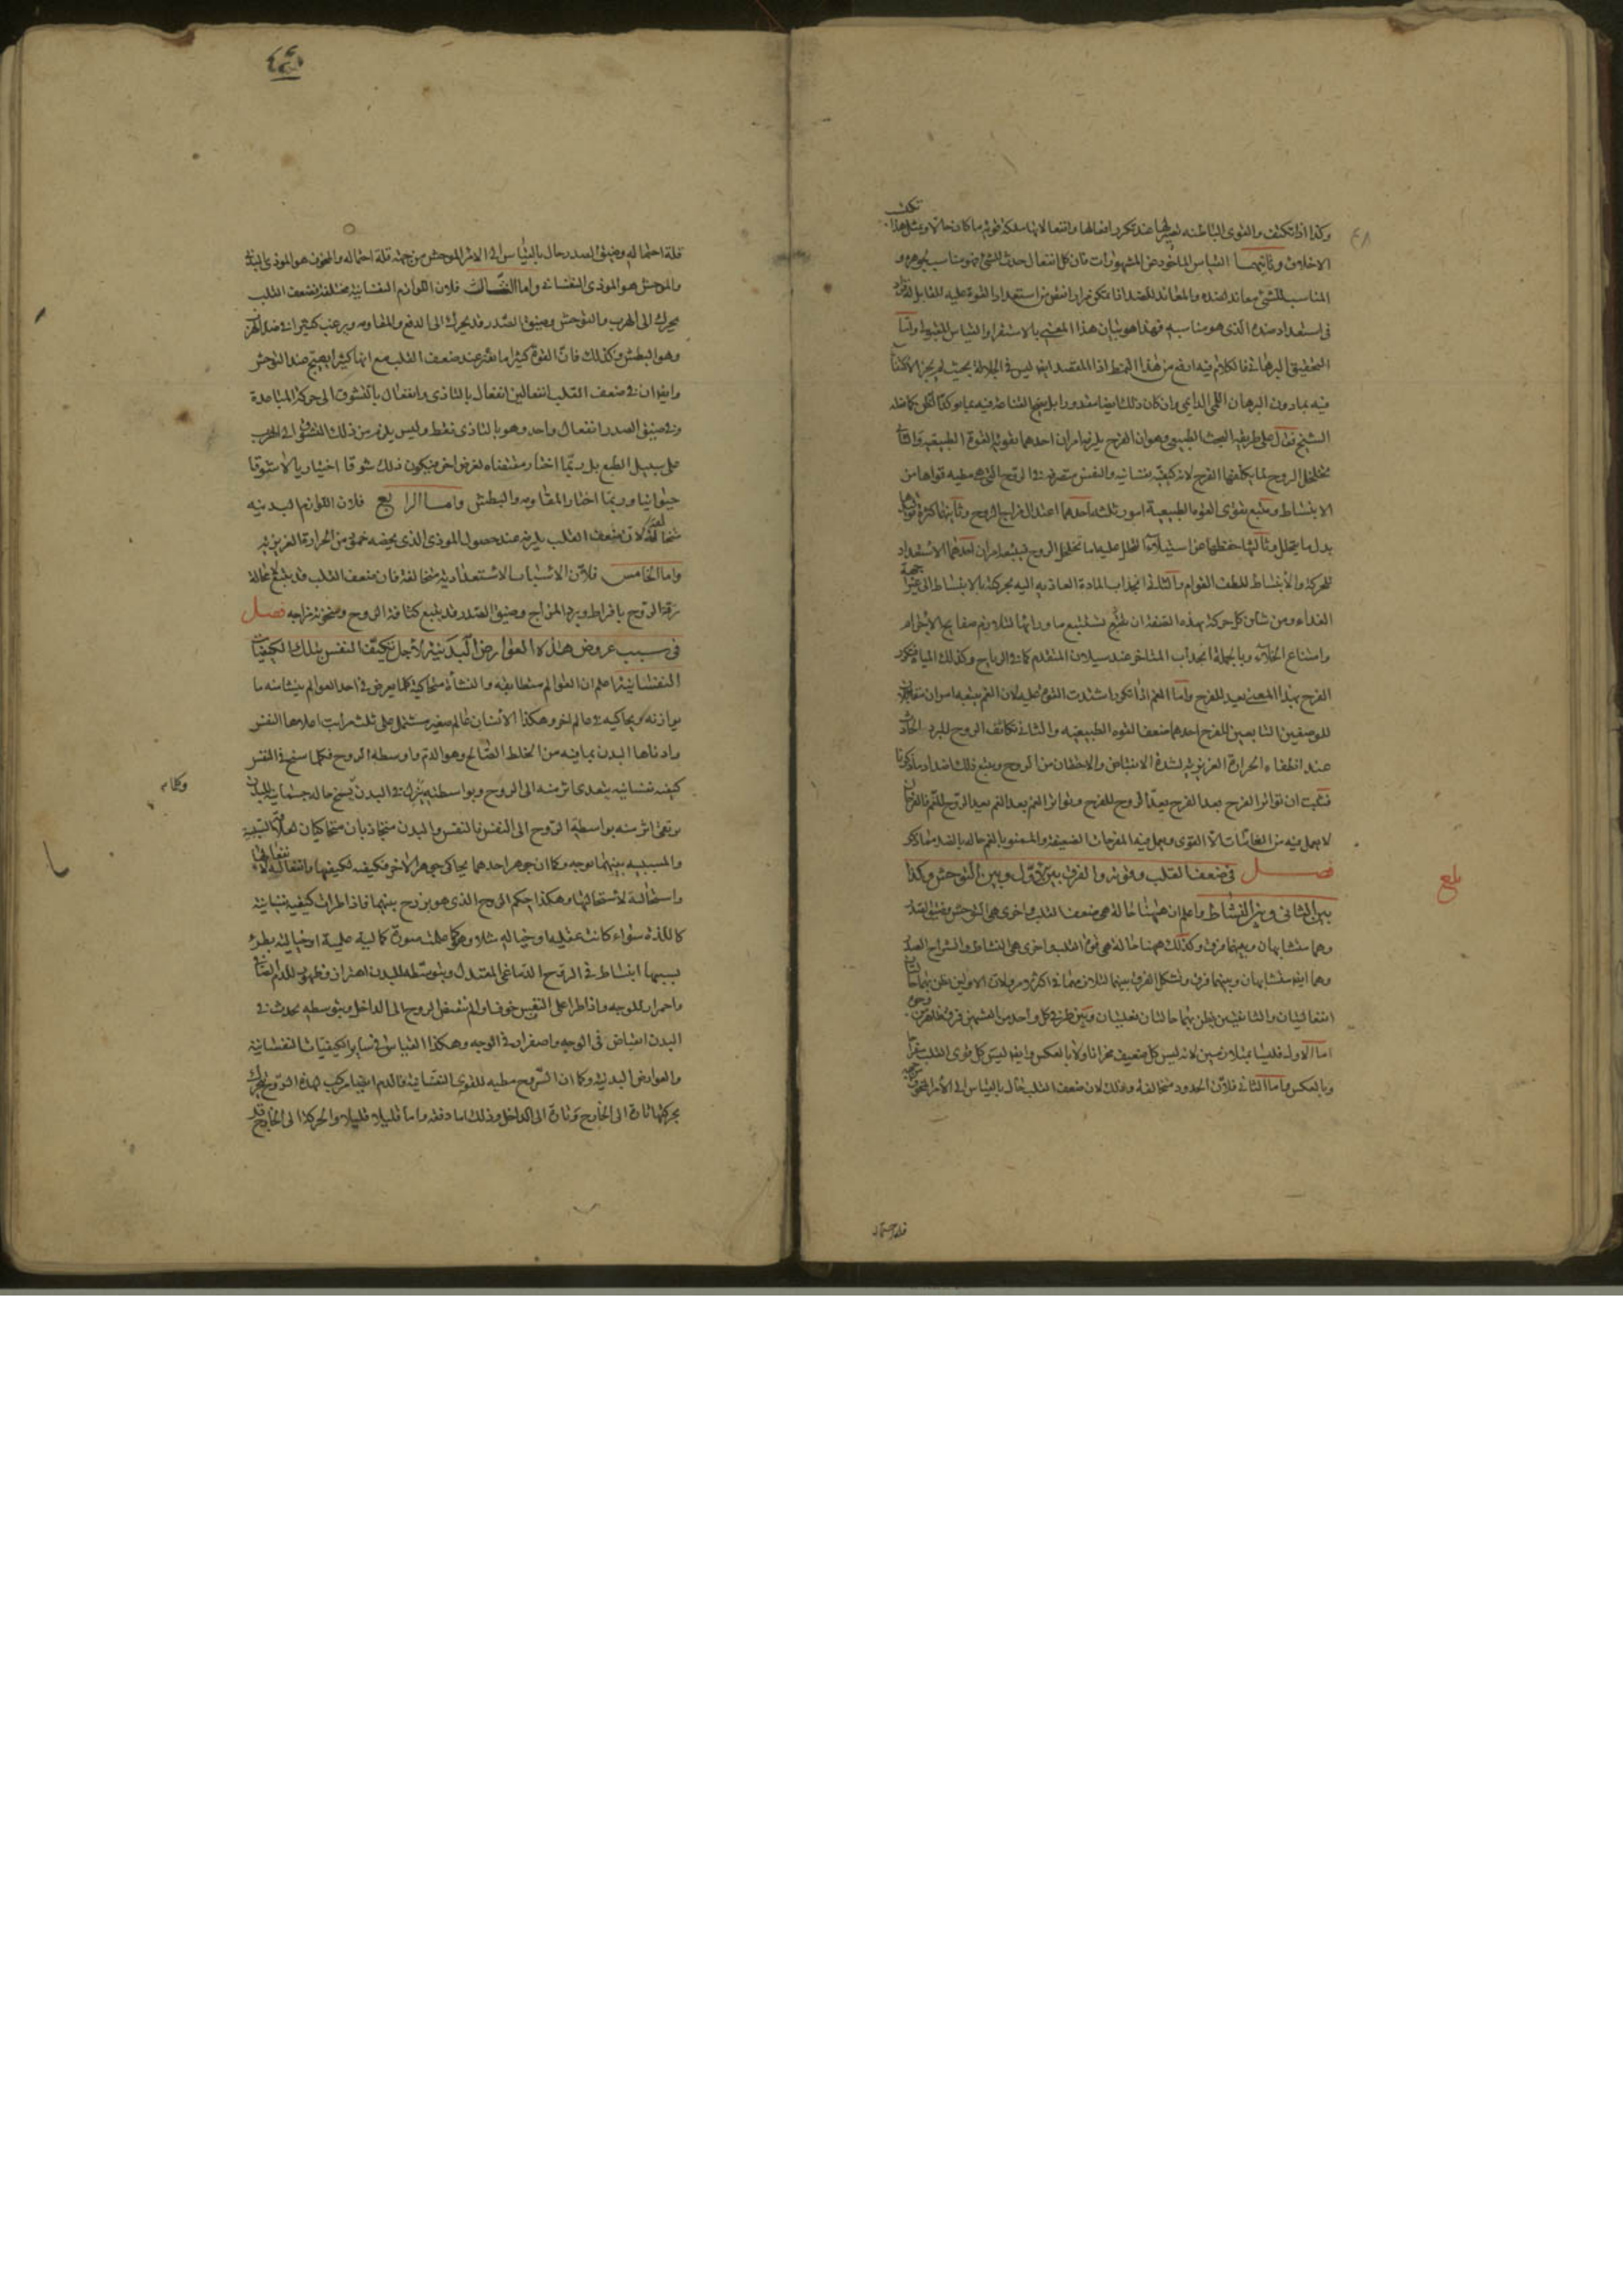 وكذا اذا تكيف والقوى الباطنه تصير لها عند تكرر افعالها وانفعالاتها ملكة قويه ما كان حالا ومثل هذا
تكيف
الاخلاق وثانيهما القياس الماخوذ من المشهورات فان كل انفعال حدث للشئ فهو مناسب لجوهره و
المناسب للشئ معاند لضده والمعاند للضد اذا تكرر نقص من استعداد القوة عليه للمقابل له فزاد
في استعداد ضده الذى هو مناسبه فهذا هو بيان هذا المعنى بالاستقراء والقياس المشهور واما
التحقيق البرهانى فالكلام فيه ارفع من هذا النمط اذا المقصد ايضا ليس في الجلالة بحيث لم يجز الاكتفاء
فيه بما دون البرهان اللمى الدايمى وان كان ذلك ايضا مقدورا بل ينجح القناعة فيه بما يوكد الظن كما فعله
الشيخ فنقول على طريقه البحث الطبيعى وهو ان الفرح يلزمه امران احدهما تقوية القوة الطبيعيه والثانى
تخلخل الروح لما يكلفها الفرح لانه كيفيه نفسانيه والنفس متصرفه فى الروح التى هى مطيه قواها من
الانبساط ويتبع تقوى القوه الطبيعية امور ثلثه احدها اعتدال مزاج الروح وثانيها كثرة تولد
بدل ما يتحلل وثالثها حفظها عن استيلاء التحلل عليها واما تخلخل الروح فيتبعه امران احدهما الاستعداد
للحركة والانبساط للطف القوام والثانى انجذاب المادة الغاذيه اليه بحركته بالانبساط الى غير
جهة
الغذاء ومن شان كل حركة بهذه الصفة ان تستتبع ما ورائها لتلازم صفايح الاجرام
وامتناع الخلاء وبالجملة انجذاب المتاخر عند سيلان المتقدم كما فى الرياح وكذلك المياه فتكرر
الفرح بهذا المعنى يعد للفرح واما الغم اذا تكرر اشتدت القوى عليه لان الغم يتبعه امران مقابلان
للوصفين التابعين للفرح احدهما ضعف القوه الطبيعيه والثانى تكاثف الروح للبرد الحادث
عند انطفاء الحرارة الغريزيه لشدة الانقباض والاحتقان من الروح ويتبع ذلك اضداد ما ذكرنا
فثبت ان تواتر الفرح بعد الفرح يعد الروح للفرح وتواتر الغم بعد الغم يعد الروح للغم فالفرحان
لا يعمل فيه من الغامات الا القوى ويعمل فيه المفرحات الضعيفة والمغموم بالغم حاله بالضد مما ذكر
فصــل في ضعف القلب وقوته والفرق بين الاول وبين التوحش وكذا
بلغ
بين الثانى وبين النشاط واعلم ان ههنا حالة هى ضعف القلب واخرى هى التوحش وضيق الصدر
وهما متشابهان وبينهما فرق وكذلك ههنا حالة هى قوة القلب واخرى هى النشاط وانشراح الصدر
وهما ايضا متشابهان وبينهما فرق وتشكل الفرق بينهما لتلازمهما فى اكثر الامر ولان الاولين يظن بهما حالتان
انفعاليتان والثانيين يظن بهما حالتان فعليتان وبين طرفى كل واحد من القسمين فرق بخلاف
وجوه
اما الاول فليسا بمتلازمين لانه ليس كل ضعيف محزانا ولا بالعكس وايضا ليس كل قوى القلب مفراحا
وبالعكس واما الثانى فلان الحدود متخالفة وذلك لان ضعف القلب حال بالقياس الى الامر المخوف
من جهة
قلة احتماله
قلة احتماله وضيق الصدر حال بالقياس الى الامر الموحش من جهة قلة احتماله والمخوف هو الموذى البدنى
والموحش هو الموذى النفسانى واما الثالث فلان اللوازم النفسانية مختلفة فضعف القلب
يحرك الى الهرب والتوحش وضيق الصدر قد يحرك الى الدفع والمقاومه ويرغب كثيرا فى ضد الهرب
وهو البطش وكذلك فان القوة كثيرا ما تفتر عند ضعف القلب مع انها كثيرا يهيج عند التوحش
وايضا ان فى ضعف القلب انفعالين انفعال بالتاذى وانفعال بالتشوق الى حركة المباعدة
وفى ضيق الصدر انفعال واحد وهو بالتاذى فقط وليس يلزم من ذلك التشوق الى الهرب
على سبيل الطبع بل ربما اختار مقتضاه لغرض اخر فيكون ذلك شوقا اختياريا لا شوقا
حيوانيا وربما اختار المقاومه والبطش وامــا الرابع فلان اللوازم البدنيه
متخالفة لان ضعف القلب يلزمه عند حصول الموذى الذى يخصه خمود من الحرارة الغريزيه
واما الخامس فلان الاسباب الاستعدادية متخالفة فان ضعف القلب قد يتبع لا محالة
رقة الروح بافراط وبرد المزاج وضيق الصدر قد يتبع كثافة الروح وسخونة مزاجه فصــل
في سبب عروض هذه العوارض البدنية لاجل تكيف النفس بتلك الكيفيات
النفسانية اعلم ان العوالم متطابقه والنشأت متحاكية كلما يعرض فى احد العوالم ينشا منه ما
يوازنه ويحاكيه فى عالم اخر وهكذا الانسان عالم صغير مشتمل على ثلث مراتب اعلاها النفس
وادناها البدن بما فيه من الخلط الصالح وهو الدم واوسطه الروح فكلما سنح فى النفس
كيفيه نفسانيه يتعدى اثر منه الى الروح وبواسطته ينزل فى البدن ويسنح حاله جسمانيه للبدن
وكلما
يرتقى اثر منه بواسطة الروح الى النفس فالنفس والبدن متجاذبان متحاكيان لعلاقة السببية
والمسببيه بينهما بوجه وكما ان جوهر احدهما يحاكى جوهر الاخر فكيفيه لكيفيتها وانفعاله لانفعالها
واستحالته لاستحالتها وهكذا حكم الروح الذى هو برزخ بينهما فاذا طرات كيفيه نفسانيه
كاللذة سواء كانت عقليه او خياليه مثلا وهو كما علمت صورة كمالية علمية او خيالية يطرأ
بسببها انبساط فى الروح الدماغى المعتدل وبتوسطه للبدن اهتزاز وظهور للدم الصافى
واحمرار للوجه واذا طرا على النفس خوف او الم انتقل الروح الى الداخل وبتوسطه يحدث فى
البدن انقباض فى الوجه واصفرار فى الوجه وهكذا القياس فى ساير الكيفيات النفسانية
والعوارض البدنية وكما ان الروح مطيه للقوى النفسانية فالدم ايضا مركب لهذه الروح يتحرك
بحركتها تارة الى الخارج وتارة الى الداخل وذلك اما دفعه واما قليلا قليلا والحركة الى الخارج قد